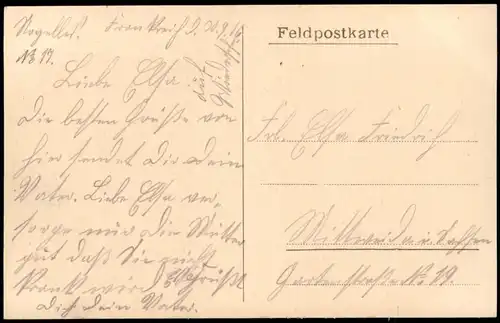 Noyelles. Frankreich d. 21.9.16.
No 17.
Liebe Elsa
Die besten Grüße von
hier sendet Dir Dein
Vater. Liebe Elsa ver-
sorge mir die Mutter
gut daß Sie nicht
krank wird Es Grüßt
Dich Dein Vater.
Auf
Wiedersehn
Feldpostkarte
Frl. Elsa Friedrich
Mittweida i. Sachsen
Gartenstraße No 19.